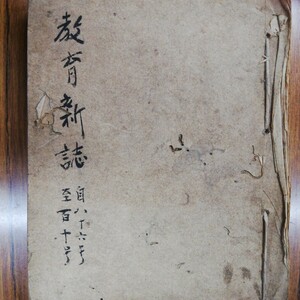 教育新誌
自八十六号
至百十号